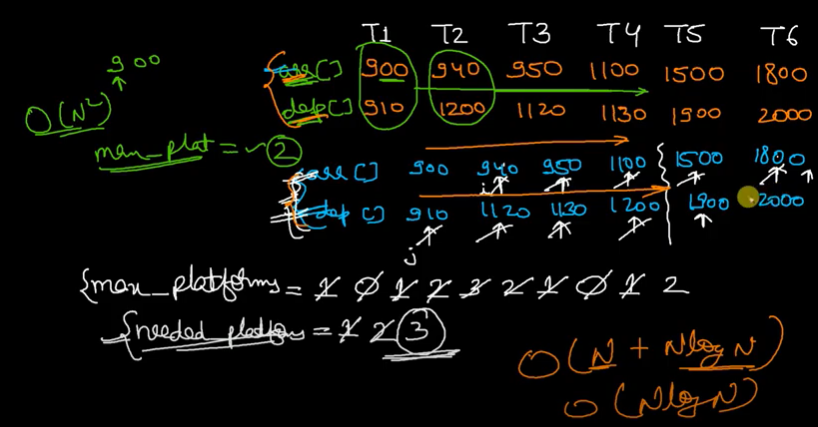 T1 T2 T3 T4 T5 T6
900
arr[] 900 940 950 1100 1500 1800
O(N²)
dep[] 910 1200 1120 1130 1900 2000
man_plat = 2
arr[] 900 940 950 1100 1500 1800
i
dep[] 910 1120 1130 1200 1900 2000
j
{man_platforms = 1 0 1 2 3 2 1 0 1 2
{needed_platforms = 1 2 3
O(N + NlogN)
O(NlogN)